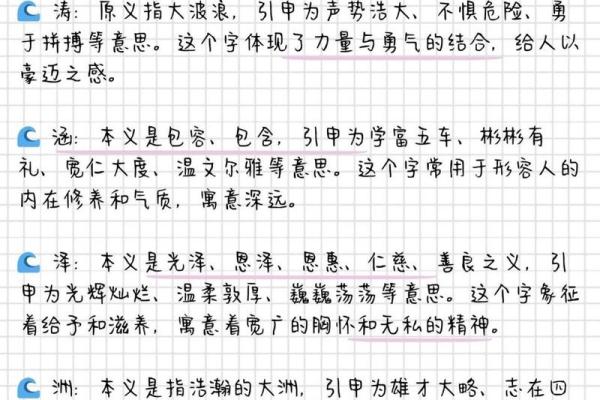 涛：原义指大波浪，引甲为声势浩大、不惧危险、勇
于拼搏等意思。这个字体现了力量与勇气的结合，给人以
豪迈之感。
涵：本义是包容、包含，引甲为学富五车、彬彬有
礼、宽仁大度、温文尔雅等意思。这个字常用于形容人的
内在修养和气质，寓意深远。
泽：本义是光泽、恩泽、恩惠、仁慈、善良之义，引
甲为光辉灿烂、温柔敦厚、巍巍荡荡等意思。这个字象征
着给予和滋养，寓意着宽广的胸怀和无私的精神。
洲：本义是指浩瀚的大洲，引甲为雄才大略、志在四